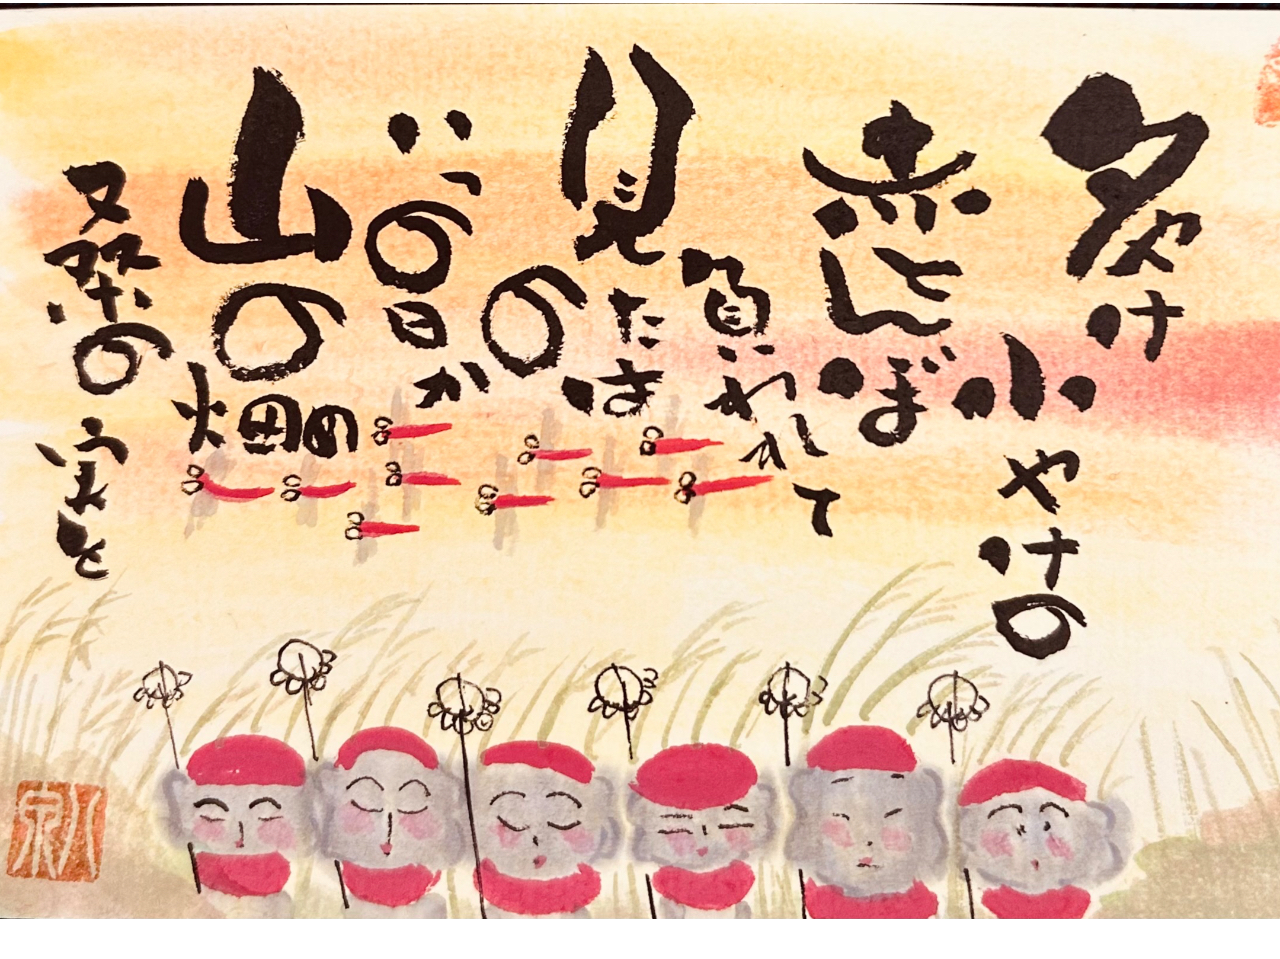 夕やけ
小やけの
赤とんぼ
負われて
見たのは
いつの日か
山の畑の
桑の実を